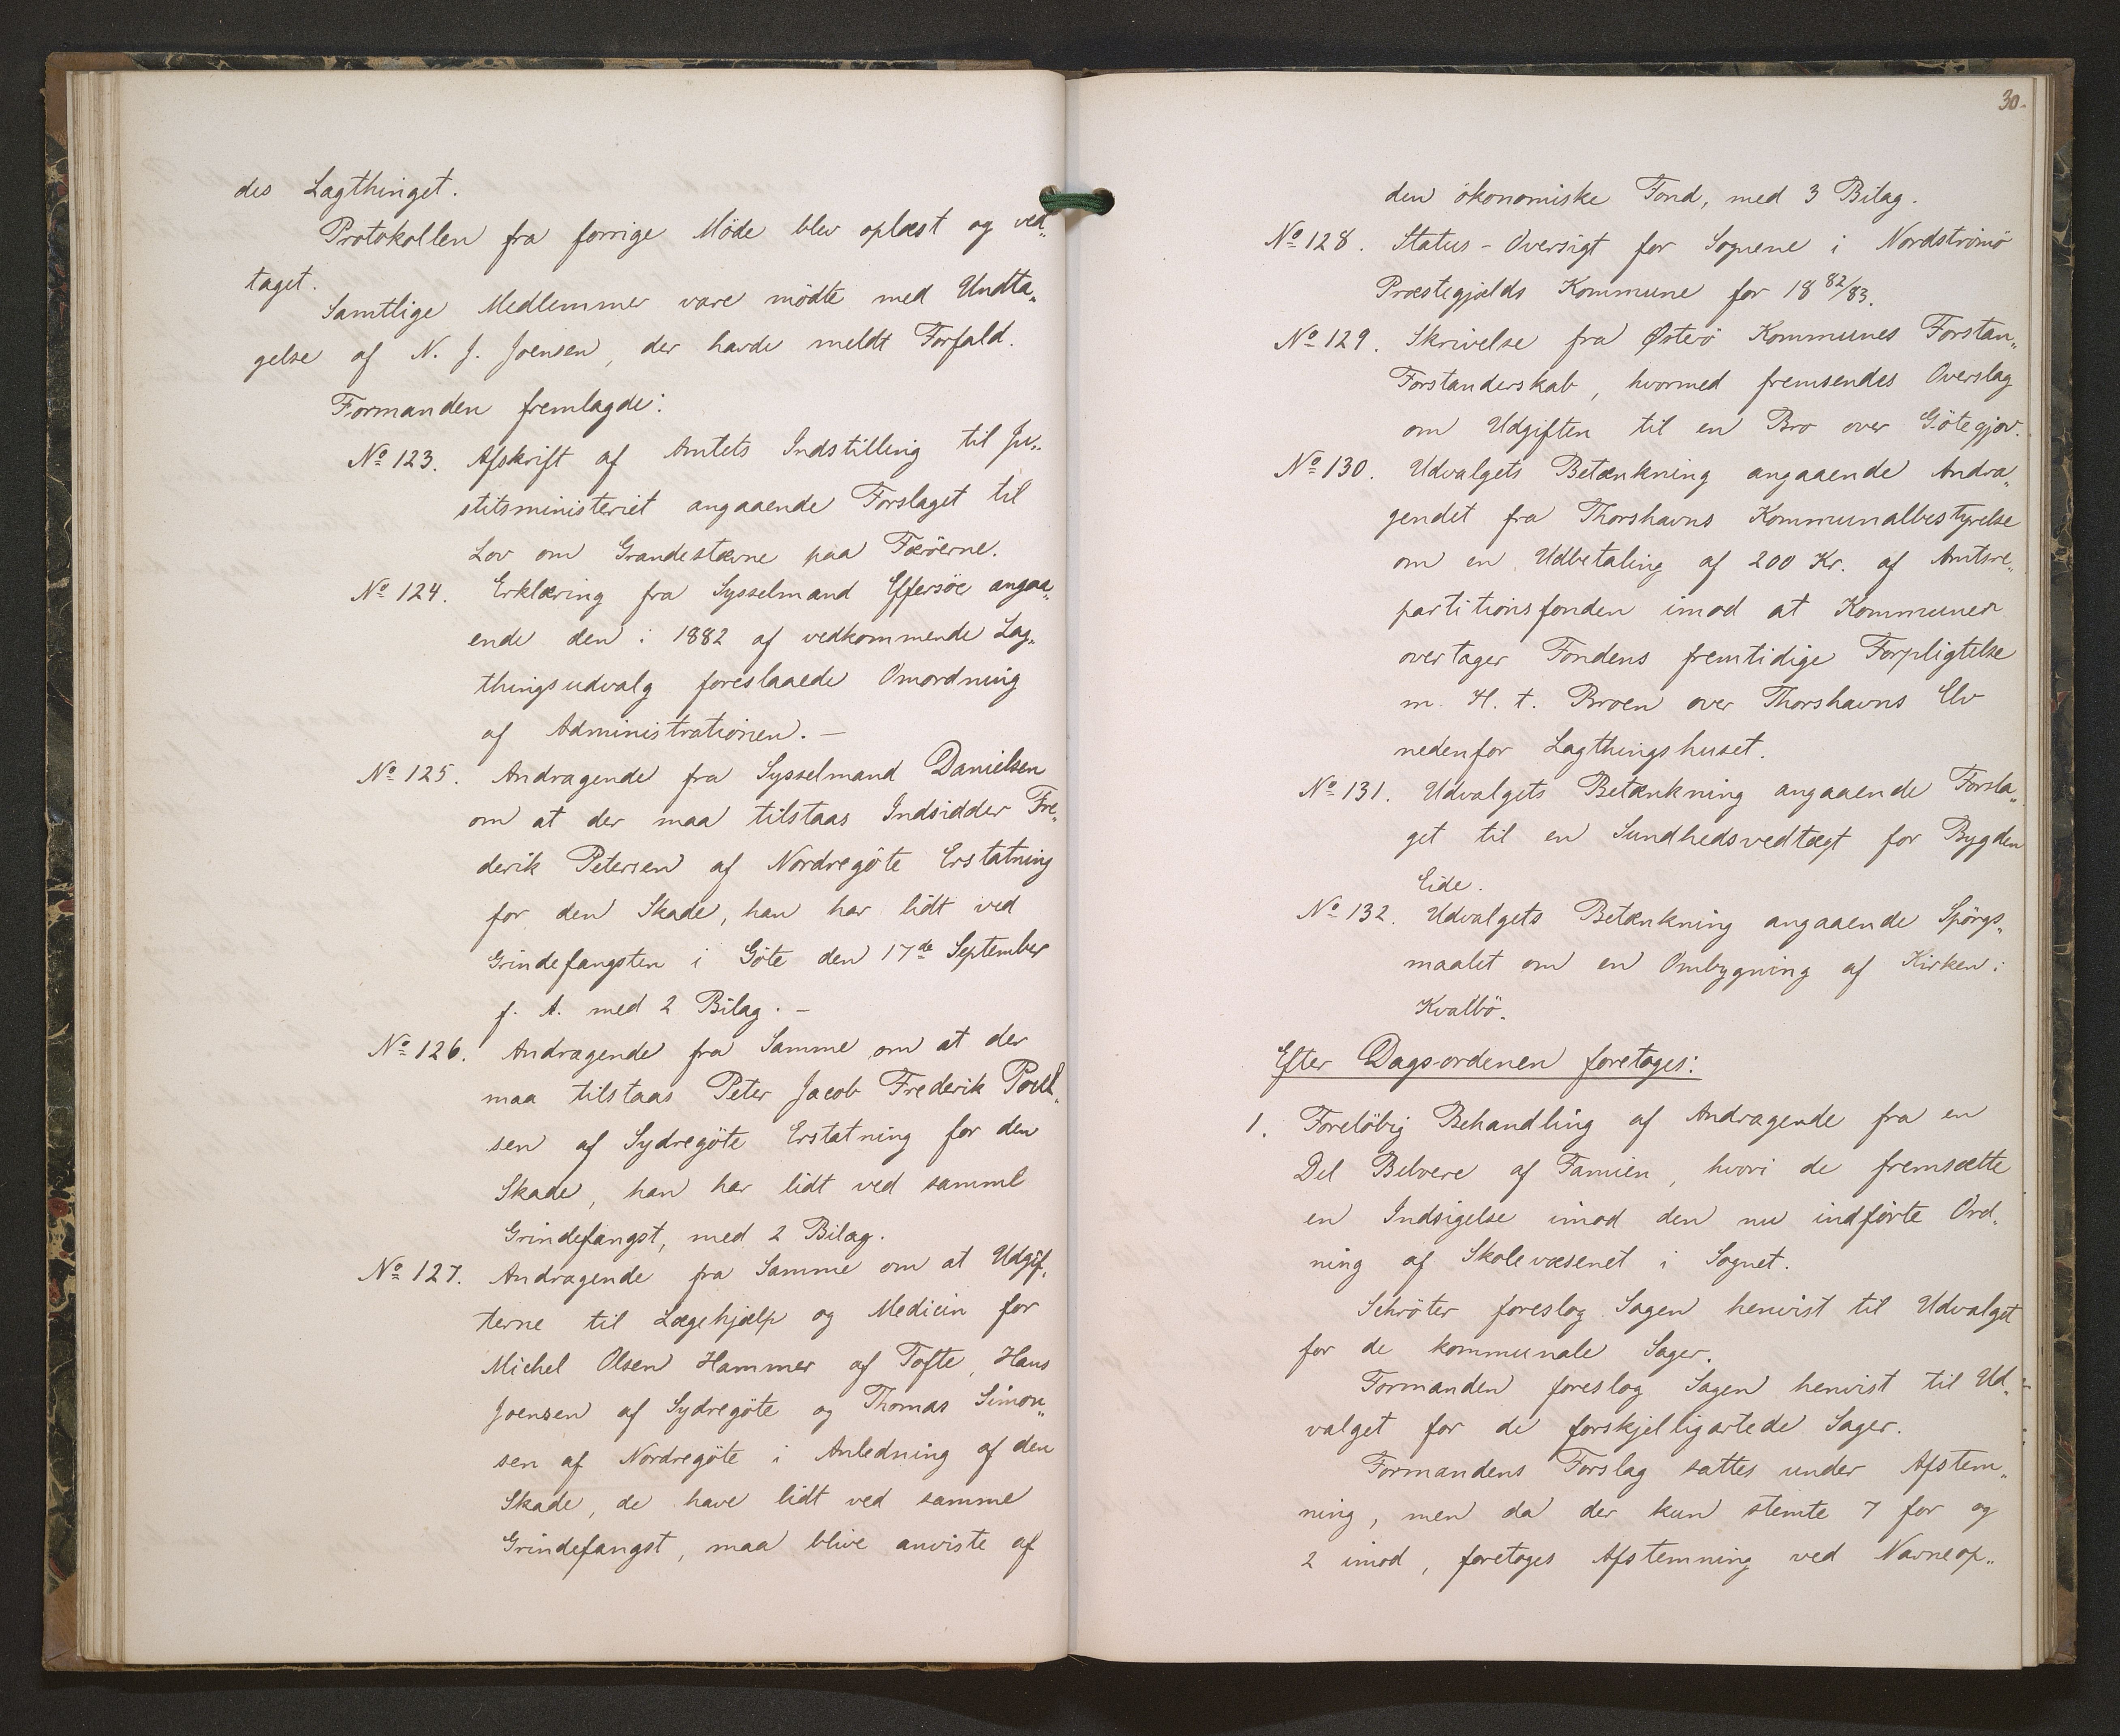 des Lagthinget.
Protokollen fra forrige Möde blev oplæst og ved„
taget.
Samtlige Medlemmer vare mödte med Undta„
gelse af N. J. Joensen, der havde meldt Forfald.
Formanden fremlagde:
No 123. Afskrift af Amtets Indstilling til Ju„
stitsministeriet angaaende Forslaget til
Lov om Grandestævne paa Færöerne.
No 124. Erklæring fra Sysselmand Effersöe angaa„
ende den i 1882 af vedkommende Lag„
thingsudvalg foreslaaede Omordning
af Administrationen. —
No 125. Andragende fra Sysselmand Danielsen
om at der maa tilstaas Indsidder Fre„
derik Petersen af Nordregöte Erstatning
for den Skade, han har lidt ved
Grindefangsten i Göte den 17de September
f. A. med 2 Bilag. —
No 126. Andragende fra Samme om at der
maa tilstaas Peter Jacob Frederik Poul„
sen af Sydregöte Erstatning for den
Skade, han har lidt ved samme
Grindefangst, med 2 Bilag.
No 127. Andragende fra Samme om at Udgif„
terne til Lægehjælp og Medicin for
Michel Olsen Hammer af Tofte, Hans
Joensen af Sydregöte og Thomas Simon„
sen af Nordregöte i Anledning af den
Skade, de have lidt ved samme
Grindefangst, maa blive anviste af
30.
den ökonomiske Fond, med 3 Bilag.
No 128. Status-Oversigt for Sognene i Nordströmö
Præstegjælds Kommune for 1882/83.
No 129. Skrivelse fra Østerö Kommunes Forstan„
Forstanderskab, hvormed fremsendes Overslag
om Udgiften til en Bro over Götegjov.
No 130. Udvalgets Betænkning angaaende Andra„
gendet fra Thorshavns Kommunalbestyrelse
om en Udbetaling af 200 Kr. af Amtsre„
partitionsfonden imod at Kommunen
overtager Fondens fremtidige Forpligtelse
m. H. t. Broen over Thorshavns Elv
nedenfor Lagthingshuset.
No 131. Udvalgets Betænkning angaaende Forsla„
get til en Sundhedsvedtægt for Bygden
Eide.
No 132. Udvalgets Betænkning angaaende Spörgs„
maalet om en Ombygning af Kirken i
Kvalbö.
Efter Dagsordenen foretoges:
1. Foreløbig Behandling af Andragende fra en
Del Beboere af Famien, hvori de fremsætte
en Indsigelse imod den nu indförte Ord„
ning af Skolevæsenet i Sognet.
Schröter foreslog Sagen henvist til Udvalget
for de kommunale Sager.
Formanden foreslog Sagen henvist til Ud„
valget for de forskjelligartede Sager.
Formandens Forslag sattes under Afstem„
ning, men da der kun stemte 7 for og
2 imod, foretoges Afstemning ved Navneop„